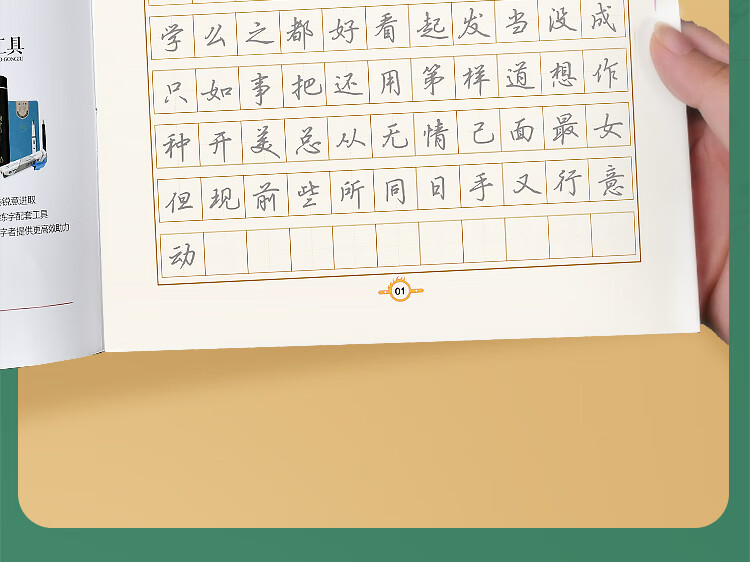 工具
学么之都好看起发当没成
只如事把还用第样道想作
种开美总从无情己面最女
但现前些所同日手又行意
动
锐意进取
练字配套工具
字者提供更高效助力
01